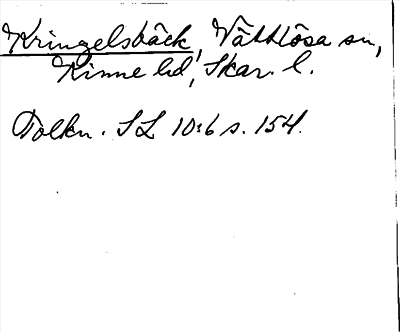 Kringelsbäck, Vättlösa sn,
Kinne hd, Skar. l.
Tolkn. SL 10:6 s. 154.